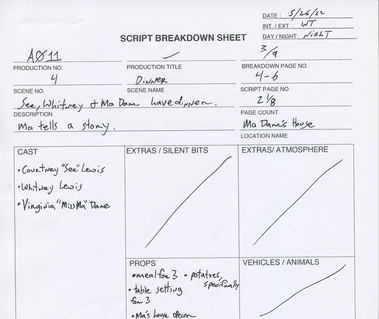 DATE: 5/26/22
INT. / EXT.: INT
SCRIPT BREAKDOWN SHEET
DAY / NIGHT: NIGHT
A011
3/9
PRODUCTION NO.
PRODUCTION TITLE
BREAKDOWN PAGE NO.
4
DINNER
4-6
SCENE NO.
SCENE NAME
SCRIPT PAGE NO.
See, Whitney & Ma Dane have dinner.
2 1/8
DESCRIPTION
PAGE COUNT
Ma tells a story.
Ma Dane's House
LOCATION NAME
CAST
EXTRAS / SILENT BITS
EXTRAS/ ATMOSPHERE
• Courtney "See" Lewis
• Whitney Lewis
• Virginia "Miss Ma" Dane
PROPS
VEHICLES / ANIMALS
• meal for 3 • potatoes, specifically
• table setting
for 3
• Ma's house decor